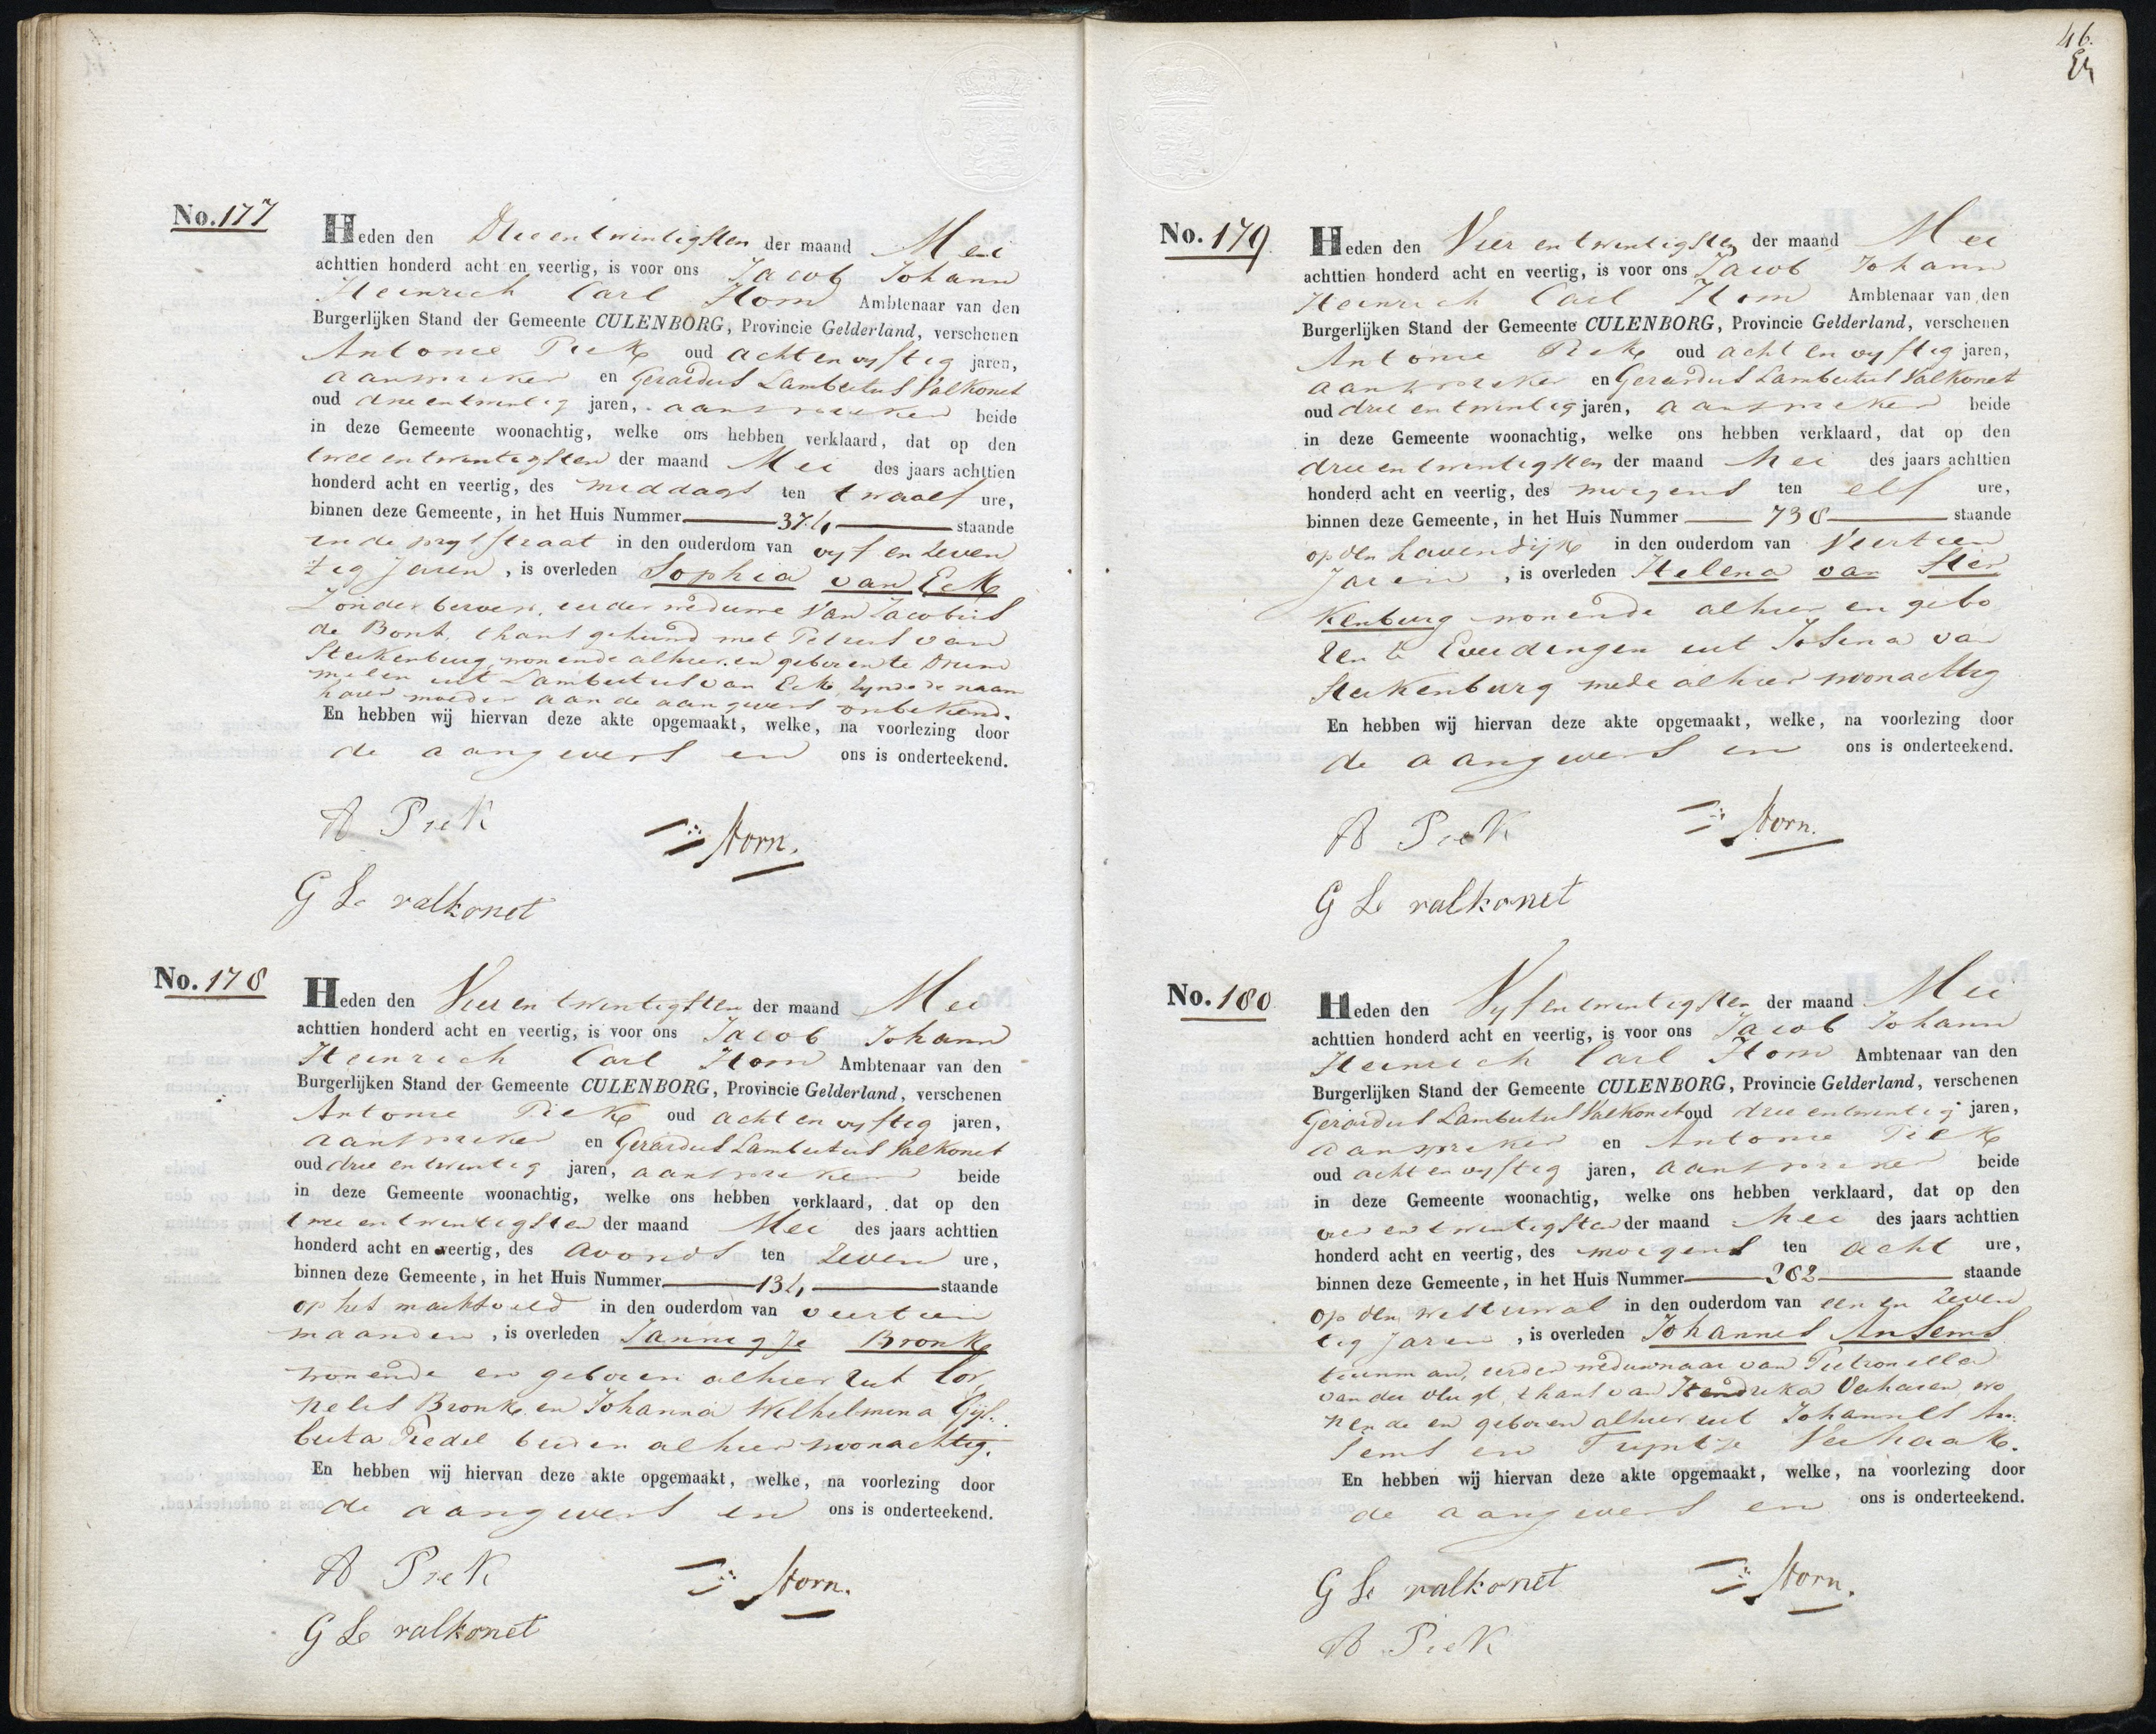 No. 177
Heden den Drieentwintigsten der maand Mei
achttien honderd acht en veertig, is voor ons Jacob Johann
Heinrich Carl Horn Ambtenaar van den
Burgerlijken Stand der Gemeente CULENBORG, Provincie Gelderland, verschenen
Antonie Piek oud acht en vyftig jaren,
aanspreker en Gerardus Lambertus Valkonet
oud drie en twintig jaren, aanspreker beide
in deze Gemeente woonachtig, welke ons hebben verklaard, dat op den
twee en twintigsten der maand Mei des jaars achttien
honderd acht en veertig, des middags ten twaalf ure,
binnen deze Gemeente, in het Huis Nummer 374 staande
in de prystraat in den ouderdom van vyf en zeven
tig Jaren, is overleden Sophia van Eck
Zonder beroep, eerder weduwe van Jacobus
de Bont, thans gehuwd met Petrus van
Sterkenburg, wonende alhier en geboren te Drum
melen uit Lambertus van Eck, zynde de naam
harer moeder aan de aangevers onbekend.
En hebben wij hiervan deze akte opgemaakt, welke, na voorlezing door
de aangevers en ons is onderteekend.
A Piek
Horn.
G L valkonet
No. 178
Heden den Vier en twintigsten der maand Mei
achttien honderd acht en veertig, is voor ons Jacob Johann
Heinrich Carl Horn Ambtenaar van den
Burgerlijken Stand der Gemeente CULENBORG, Provincie Gelderland, verschenen
Antonie Piek oud acht en vyftig jaren,
aanspreker en Gerardus Lambertus Valkonet
oud drie en twintig jaren, aanspreker beide
in deze Gemeente woonachtig, welke ons hebben verklaard, dat op den
twee en twintigsten der maand Mei des jaars achttien
honderd acht en veertig, des avonds ten zeven ure,
binnen deze Gemeente, in het Huis Nummer 134 staande
op het marktveld in den ouderdom van veertien
maanden, is overleden Jannigje Bronk
wonende en geboren alhier uit Cor
nelis Bronk en Johanna Wilhelmina Gys
berta Riedel beiden alhier woonachtig.
En hebben wij hiervan deze akte opgemaakt, welke, na voorlezing door
de aangevers en ons is onderteekend.
A Piek
Horn.
G L valkonet
46.
No. 179
Heden den Vier en twintigsten der maand Mei
achttien honderd acht en veertig, is voor ons Jacob Johann
Heinrich Carl Horn Ambtenaar van den
Burgerlijken Stand der Gemeente CULENBORG, Provincie Gelderland, verschenen
Antonie Piek oud acht en vyftig jaren,
aanspreker en Gerardus Lambertus Valkonet
oud drie en twintig jaren, aanspreker beide
in deze Gemeente woonachtig, welke ons hebben verklaard, dat op den
drie en twintigsten der maand Mei des jaars achttien
honderd acht en veertig, des morgens ten elf ure,
binnen deze Gemeente, in het Huis Nummer 738 staande
op den havendijk in den ouderdom van Veertien
Jaren, is overleden Helena van Ster
kenburg wonende alhier en gebo
ren te Everdingen uit Josina van
Sterkenburg mede alhier woonachtig
En hebben wij hiervan deze akte opgemaakt, welke, na voorlezing door
de aangevers en ons is onderteekend.
A Piek
Horn.
G L valkonet
No. 180
Heden den Vyf en twintigsten der maand Mei
achttien honderd acht en veertig, is voor ons Jacob Johann
Heinrich Carl Horn Ambtenaar van den
Burgerlijken Stand der Gemeente CULENBORG, Provincie Gelderland, verschenen
Gerardus Lambertus Valkonet oud drie en twintig jaren,
aanspreker en Antonie Piek
oud acht en vyftig jaren, aanspreker beide
in deze Gemeente woonachtig, welke ons hebben verklaard, dat op den
vier en twintigsten der maand Mei des jaars achttien
honderd acht en veertig, des morgens ten acht ure,
binnen deze Gemeente, in het Huis Nummer 282 staande
op den westerwal in den ouderdom van een en zeven
tig Jaren, is overleden Johannes Ansems
tuinman, eerder weduwnaar van Pietronella
van der Vlugt, thans van Hendrika Verharen, wo
nende en geboren alhier uit Johannes An
sems en Tryntje Verhaak.
En hebben wij hiervan deze akte opgemaakt, welke, na voorlezing door
de aangevers en ons is onderteekend.
G L valkonet
Horn.
A Piek